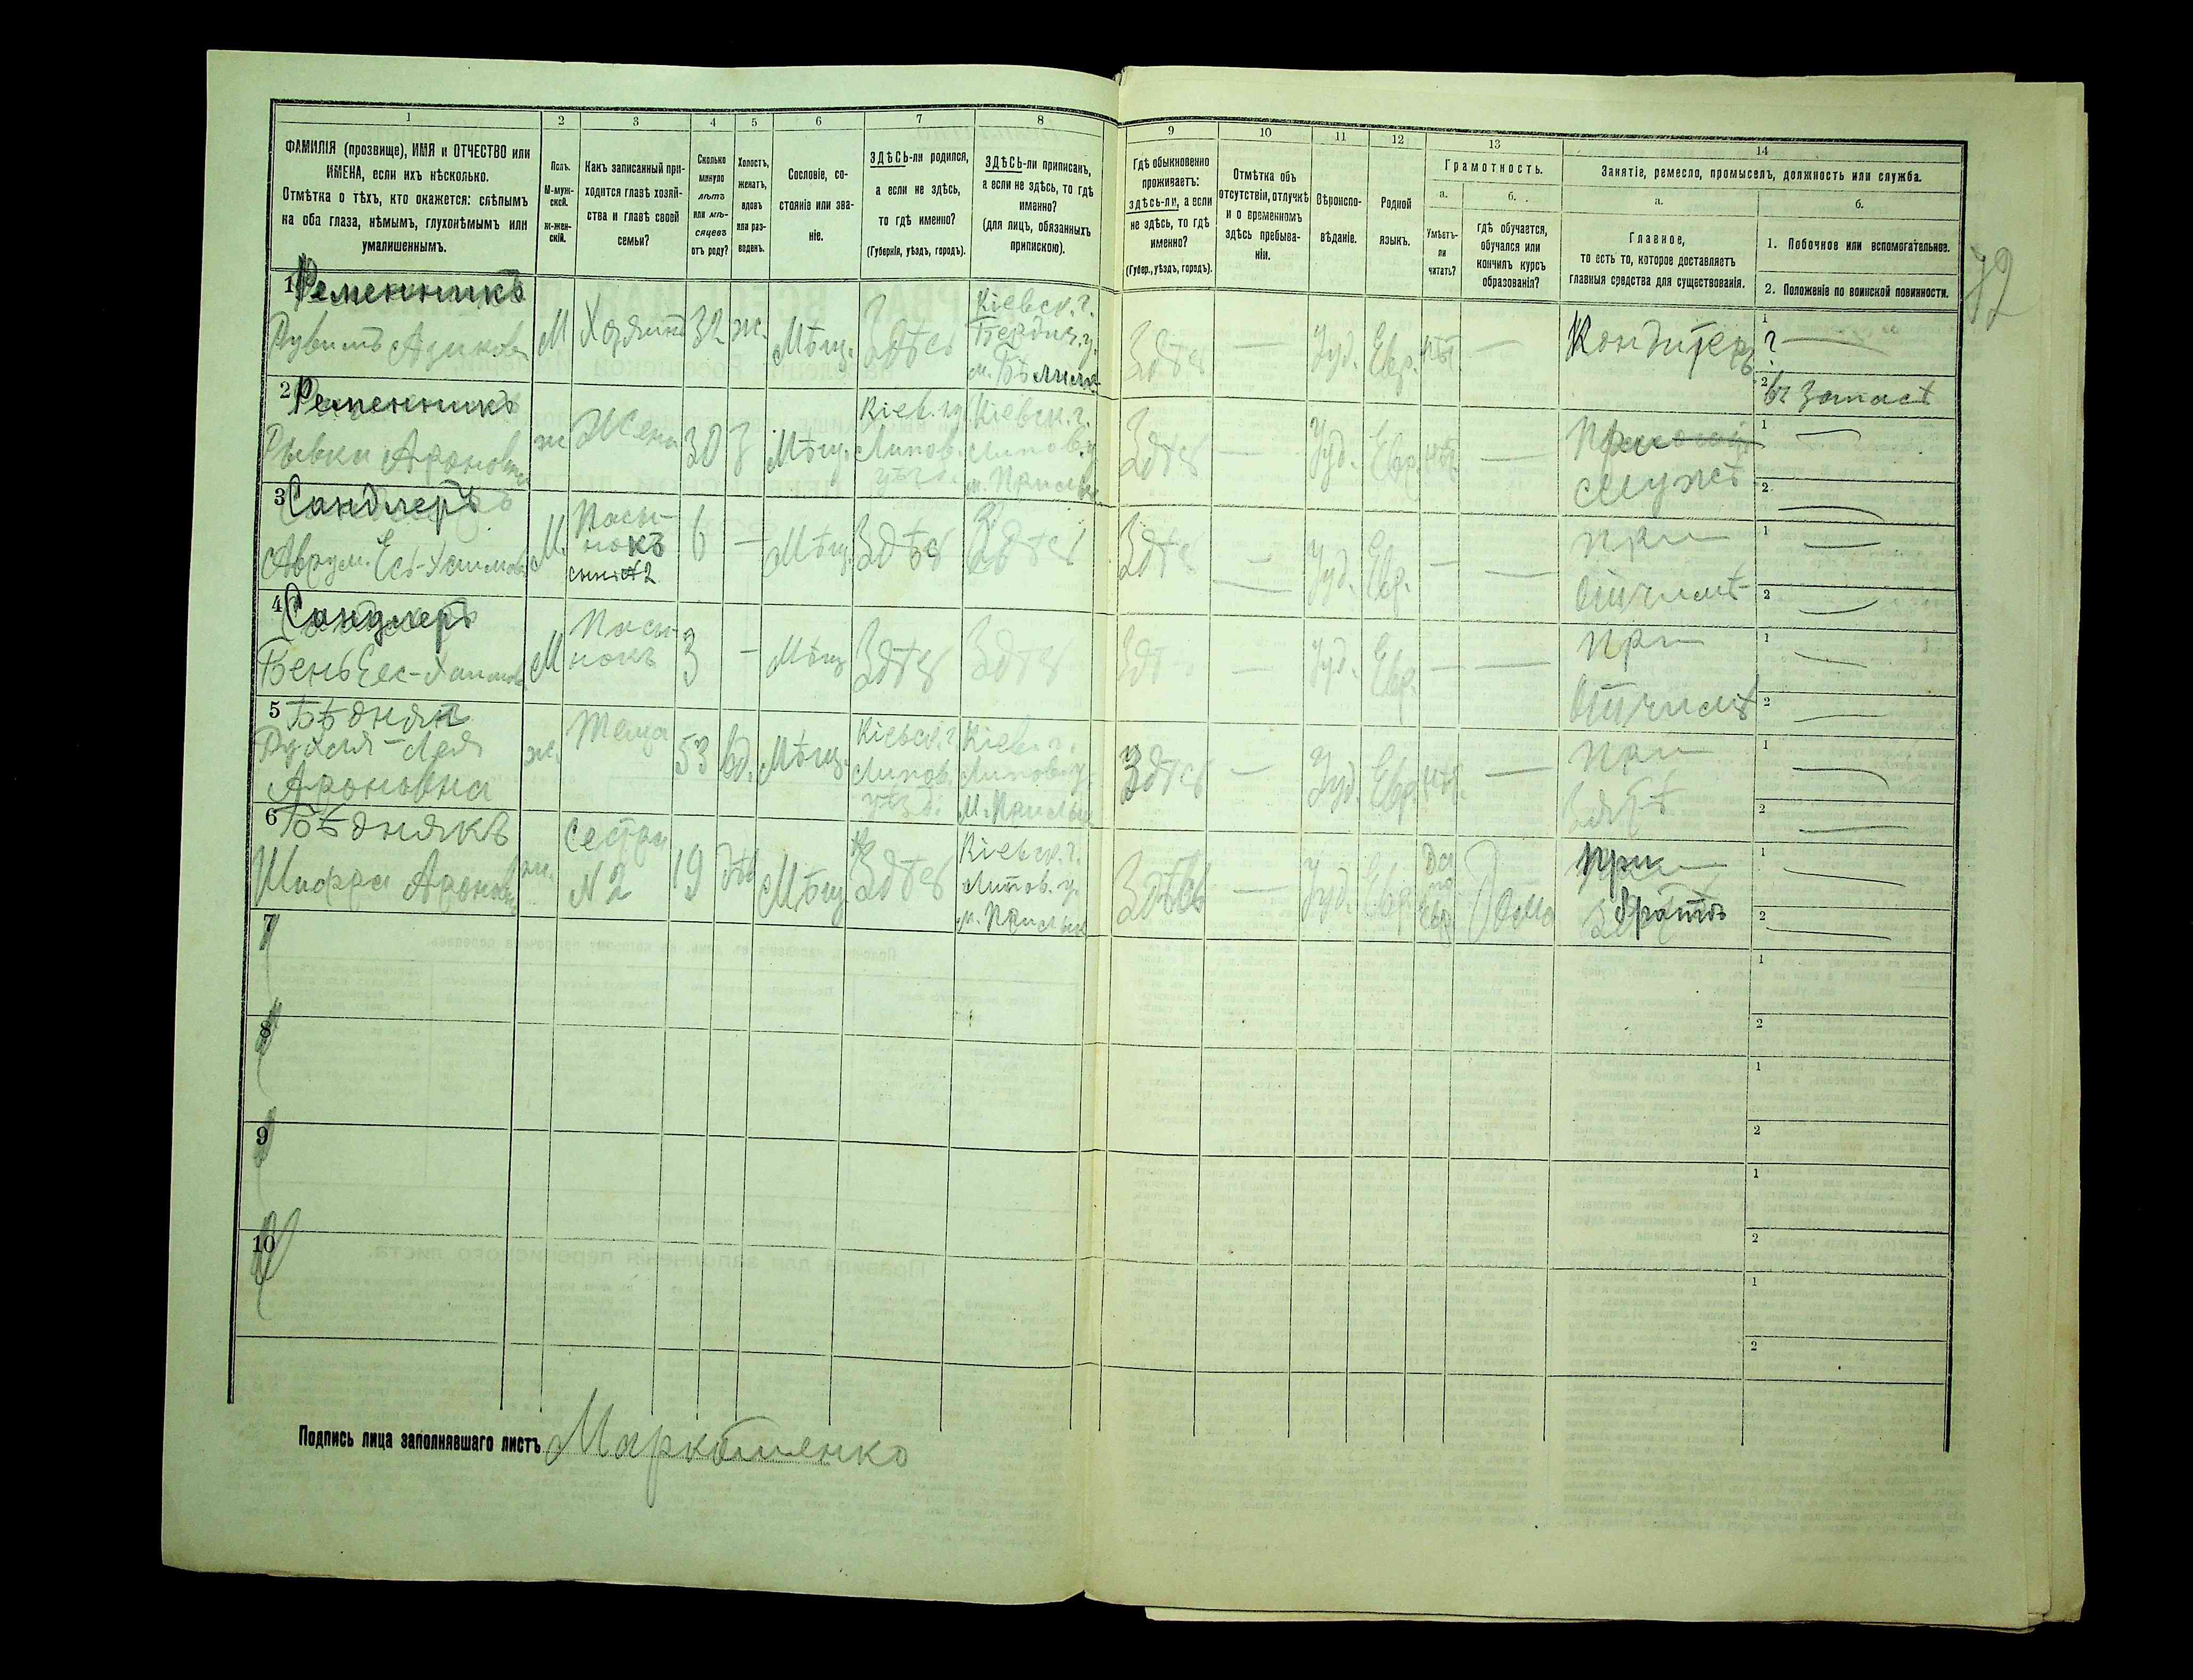 1 2 3 4 5 6 7 8 9 10 11 12 13 14
ФАМИЛІЯ (прозвище), ИМЯ и ОТЧЕСТВО или
ИМЕНА, если ихъ нѣсколько.
Отмѣтка о тѣхъ, кто окажется: слѣпымъ
на оба глаза, нѣмымъ, глухонѣмымъ или
умалишеннымъ.
Полъ.
М-муж-
ской.
Ж-жен-
скій.
Какъ записанный при-
ходится главѣ хозяй-
ства и главѣ своей
семьи?
Сколько
минуло
лѣтъ
или мѣ-
сяцевъ
отъ роду?
Холостъ,
женатъ,
вдовъ
или раз-
веденъ.
Сословіе, со-
стояніе или зва-
ніе.
ЗДѢСЬ-ли родился,
а если не здѣсь,
то гдѣ именно?
(Губернія, уѣздъ, городъ).
ЗДѢСЬ-ли приписанъ,
а если не здѣсь, то гдѣ
именно?
(для лицъ, обязанныхъ
припискою).
Гдѣ обыкновенно
проживаетъ:
здѣсь-ли, а если
не здѣсь, то гдѣ
именно?
(Губер., уѣздъ, городъ).
Отмѣтка объ
отсутствіи, отлучкѣ
и о временномъ
здѣсь пребыва-
ніи.
Вѣроиспо-
вѣданіе.
Родной
языкъ.
Грамотность.
а.
Умѣетъ-
ли
читать?
б.
гдѣ обучается,
обучался или
кончилъ курсъ
образованія?
Занятіе, ремесло, промыселъ, должность или служба.
а.
Главное,
то есть то, которое доставляетъ
главныя средства для существованія.
б.
1. Побочное или вспомогательное.
2. Положеніе по воинской повинности.
72
1 Ременникъ
М
Хозяинъ
32
ж.
Мѣщ.
Здѣсь
Кіевск. г.
Бердич. у.
Здѣсь
—
Іуд.
Евр.
нѣт.
—
Кондитеръ
1
?
2 въ запасѣ
2 Ременникъ
Рывка Ароновна
ж
Жена
30
З
Мѣщ.
Кіев. гу
Липов.
уѣзд.
Кіевск. г.
Липов. у
Здѣсь
—
Іуд.
Евр.
нѣт.
—
При
мужѣ
1 —
2 —
3 Сандлеръ
М.
Пасы-
нокъ
сынъ №2
6
—
Мѣщ.
Здѣсь
Здѣсь
Здѣсь
—
Іуд.
Евр.
—
—
при
отчимѣ
1 —
2 —
4 Сандлеръ
М
Пасы-
нокъ
3
—
Мѣщ
Здѣсь
Здѣсь
—
Іуд.
Евр.
—
—
при
отчимѣ
1 —
2 —
5
Рухля-Лея
Ароновна
ж.
Теща
53
вд.
Мѣщ.
Кіевск. г.
Липов.
уѣзд.
Кіев. г.
Липов. у.
Здѣсь
—
Іуд.
Евр.
нѣт.
—
При
зятѣ
1 —
2 —
6 Бѣднякъ
ж.
сестра
№2
19
дѣв
Мѣщ
Здѣсь
Кіевск. г.
Липов. у.
Здѣсь
—
Іуд.
Евр.
Да
по
Евр.
Дома
При
1 —
2 —
7
1
2
8
1
2
9
1
2
10
1
2
Подпись лица заполнявшаго листъ